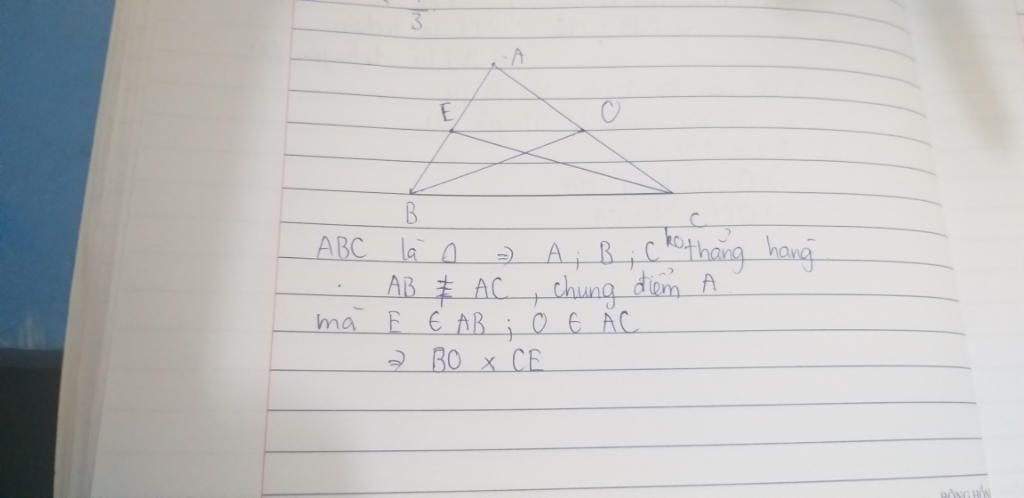 3
A
E O
B
C
ABC là Δ => A ; B ; C ko thẳng hàng
AB ≢ AC , chung điểm A
mà E ∈ AB ; O ∈ AC
=> BO × CE
HỒNG HÀ